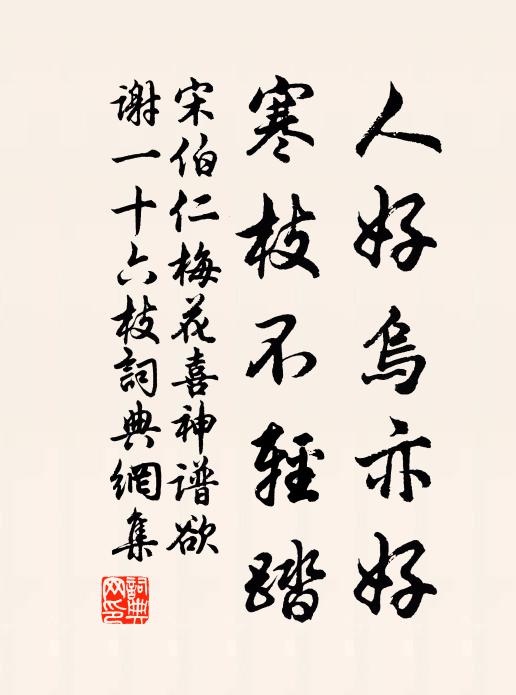 人好烏亦好
寒枝不輕踏
宋伯仁梅花喜神譜欲
謝一十六枝詞典網集
詞典网印